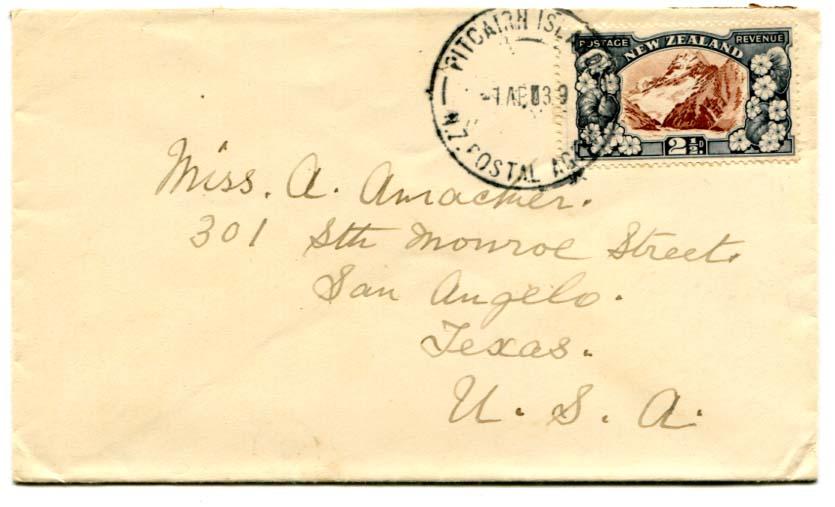 PITCAIRN ISLAND
-1 AP 39
N.Z. POSTAL
POSTAGE REVENUE
NEW ZEALAND
2½D
Miss. A. Amacher.
301 Sth Monroe Street.
San Angelo.
Texas.
U. S. A.